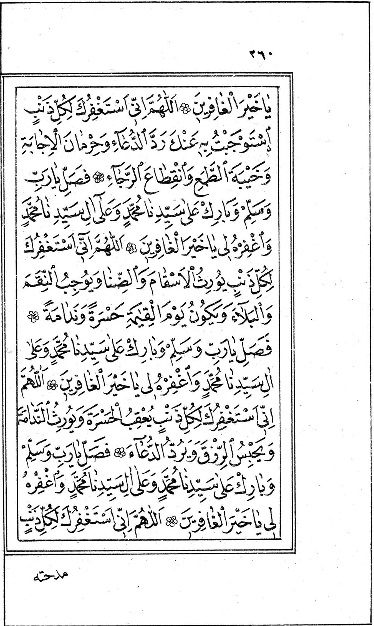 ٣٦٠
يَاخَيْرَ الْغَافِرِينَ ۞ اَللّٰهُمَّ اِنِّى اَسْتَغْفِرُكَ لِكُلِّ ذَنْبٍ
اِسْتَوْجَبْتُ بِهٖ عَنْكَ رَدَّ الدُّعَآءِ وَحِرْمَانَ الْاِجَابَةِ
وَخَيْبَةَ الطَّمَعِ وَانْقِطَاعَ الرَّجَآءِ ۞ فَصَلِّ يَارَبِّ
وَسَلِّمْ وَبَارِكْ عَلٰى سَيِّدِنَا مُحَمَّدٍ وَعَلٰٓى اٰلِ سَيِّدِنَا مُحَمَّدٍ
وَاغْفِرْهُ لِى يَاخَيْرَ الْغَافِرِينَ ۞ اَللّٰهُمَّ اِنِّى اَسْتَغْفِرُكَ
لِكُلِّ ذَنْبٍ يُورِثُ الْاَسْقَامَ وَالضَّنَا وَيُوجِبُ النِّقَمَ
وَالْبَلَآءَ وَيَكُونُ يَوْمَ الْقِيٰمَةِ حَسْرَةً وَنَدَامَةً ۞
فَصَلِّ يَارَبِّ وَسَلِّمْ وَبَارِكْ عَلٰى سَيِّدِنَا مُحَمَّدٍ وَعَلٰٓى
اٰلِ سَيِّدِنَا مُحَمَّدٍ وَاغْفِرْهُ لِى يَاخَيْرَ الْغَافِرِينَ ۞ اَللّٰهُمَّ
اِنِّى اَسْتَغْفِرُكَ لِكُلِّ ذَنْبٍ يُعْقِبُ الْحَسْرَةَ وَيُورِثُ النَّدَامَةَ
وَيَحْبِسُ الرِّزْقَ وَيَرُدُّ الدُّعَآءَ ۞ فَصَلِّ يَارَبِّ وَسَلِّمْ
وَبَارِكْ عَلٰى سَيِّدِنَا مُحَمَّدٍ وَعَلٰٓى اٰلِ سَيِّدِنَا مُحَمَّدٍ وَاغْفِرْهُ
لِى يَاخَيْرَ الْغَافِرِينَ ۞ اَللّٰهُمَّ اِنِّى اَسْتَغْفِرُكَ لِكُلِّ ذَنْبٍ
مدحته